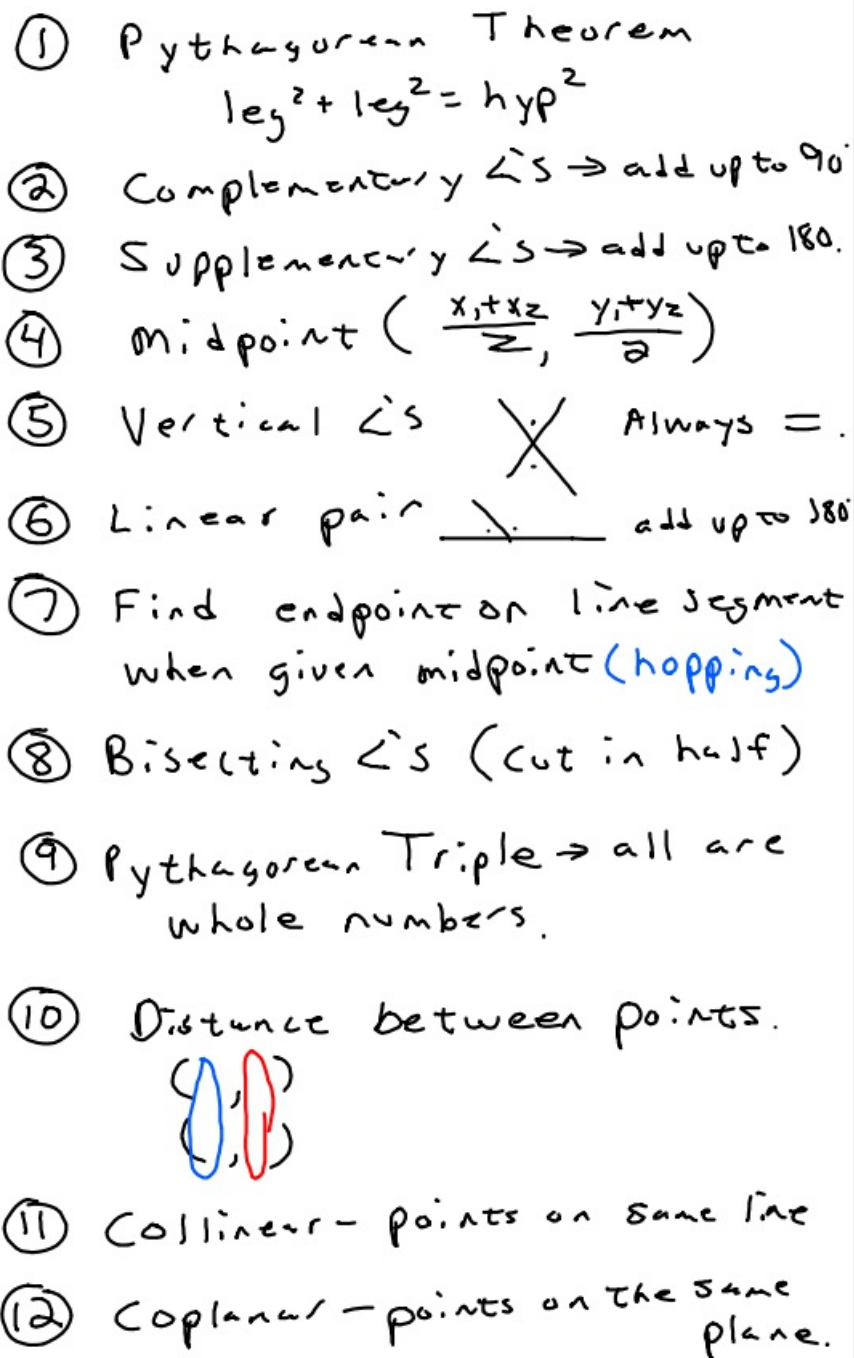 ① Pythagorean Theorem
leg² + leg² = hyp²
② Complementary ∠'s → add up to 90°
③ Supplementary ∠'s → add up to 180.
④ midpoint ( x₁+x₂/2, y₁+y₂/2 )
⑤ Vertical ∠'s Always = .
⑥ Linear pair add up to 180°
⑦ Find endpoint on line segment
when given midpoint (hopping)
⑧ Bisecting ∠'s (cut in half)
⑨ Pythagorean Triple → all are
whole numbers.
⑩ Distance between points.
( , )
( , )
⑪ Collinear - points on same line
⑫ Coplanar - points on the same
plane.